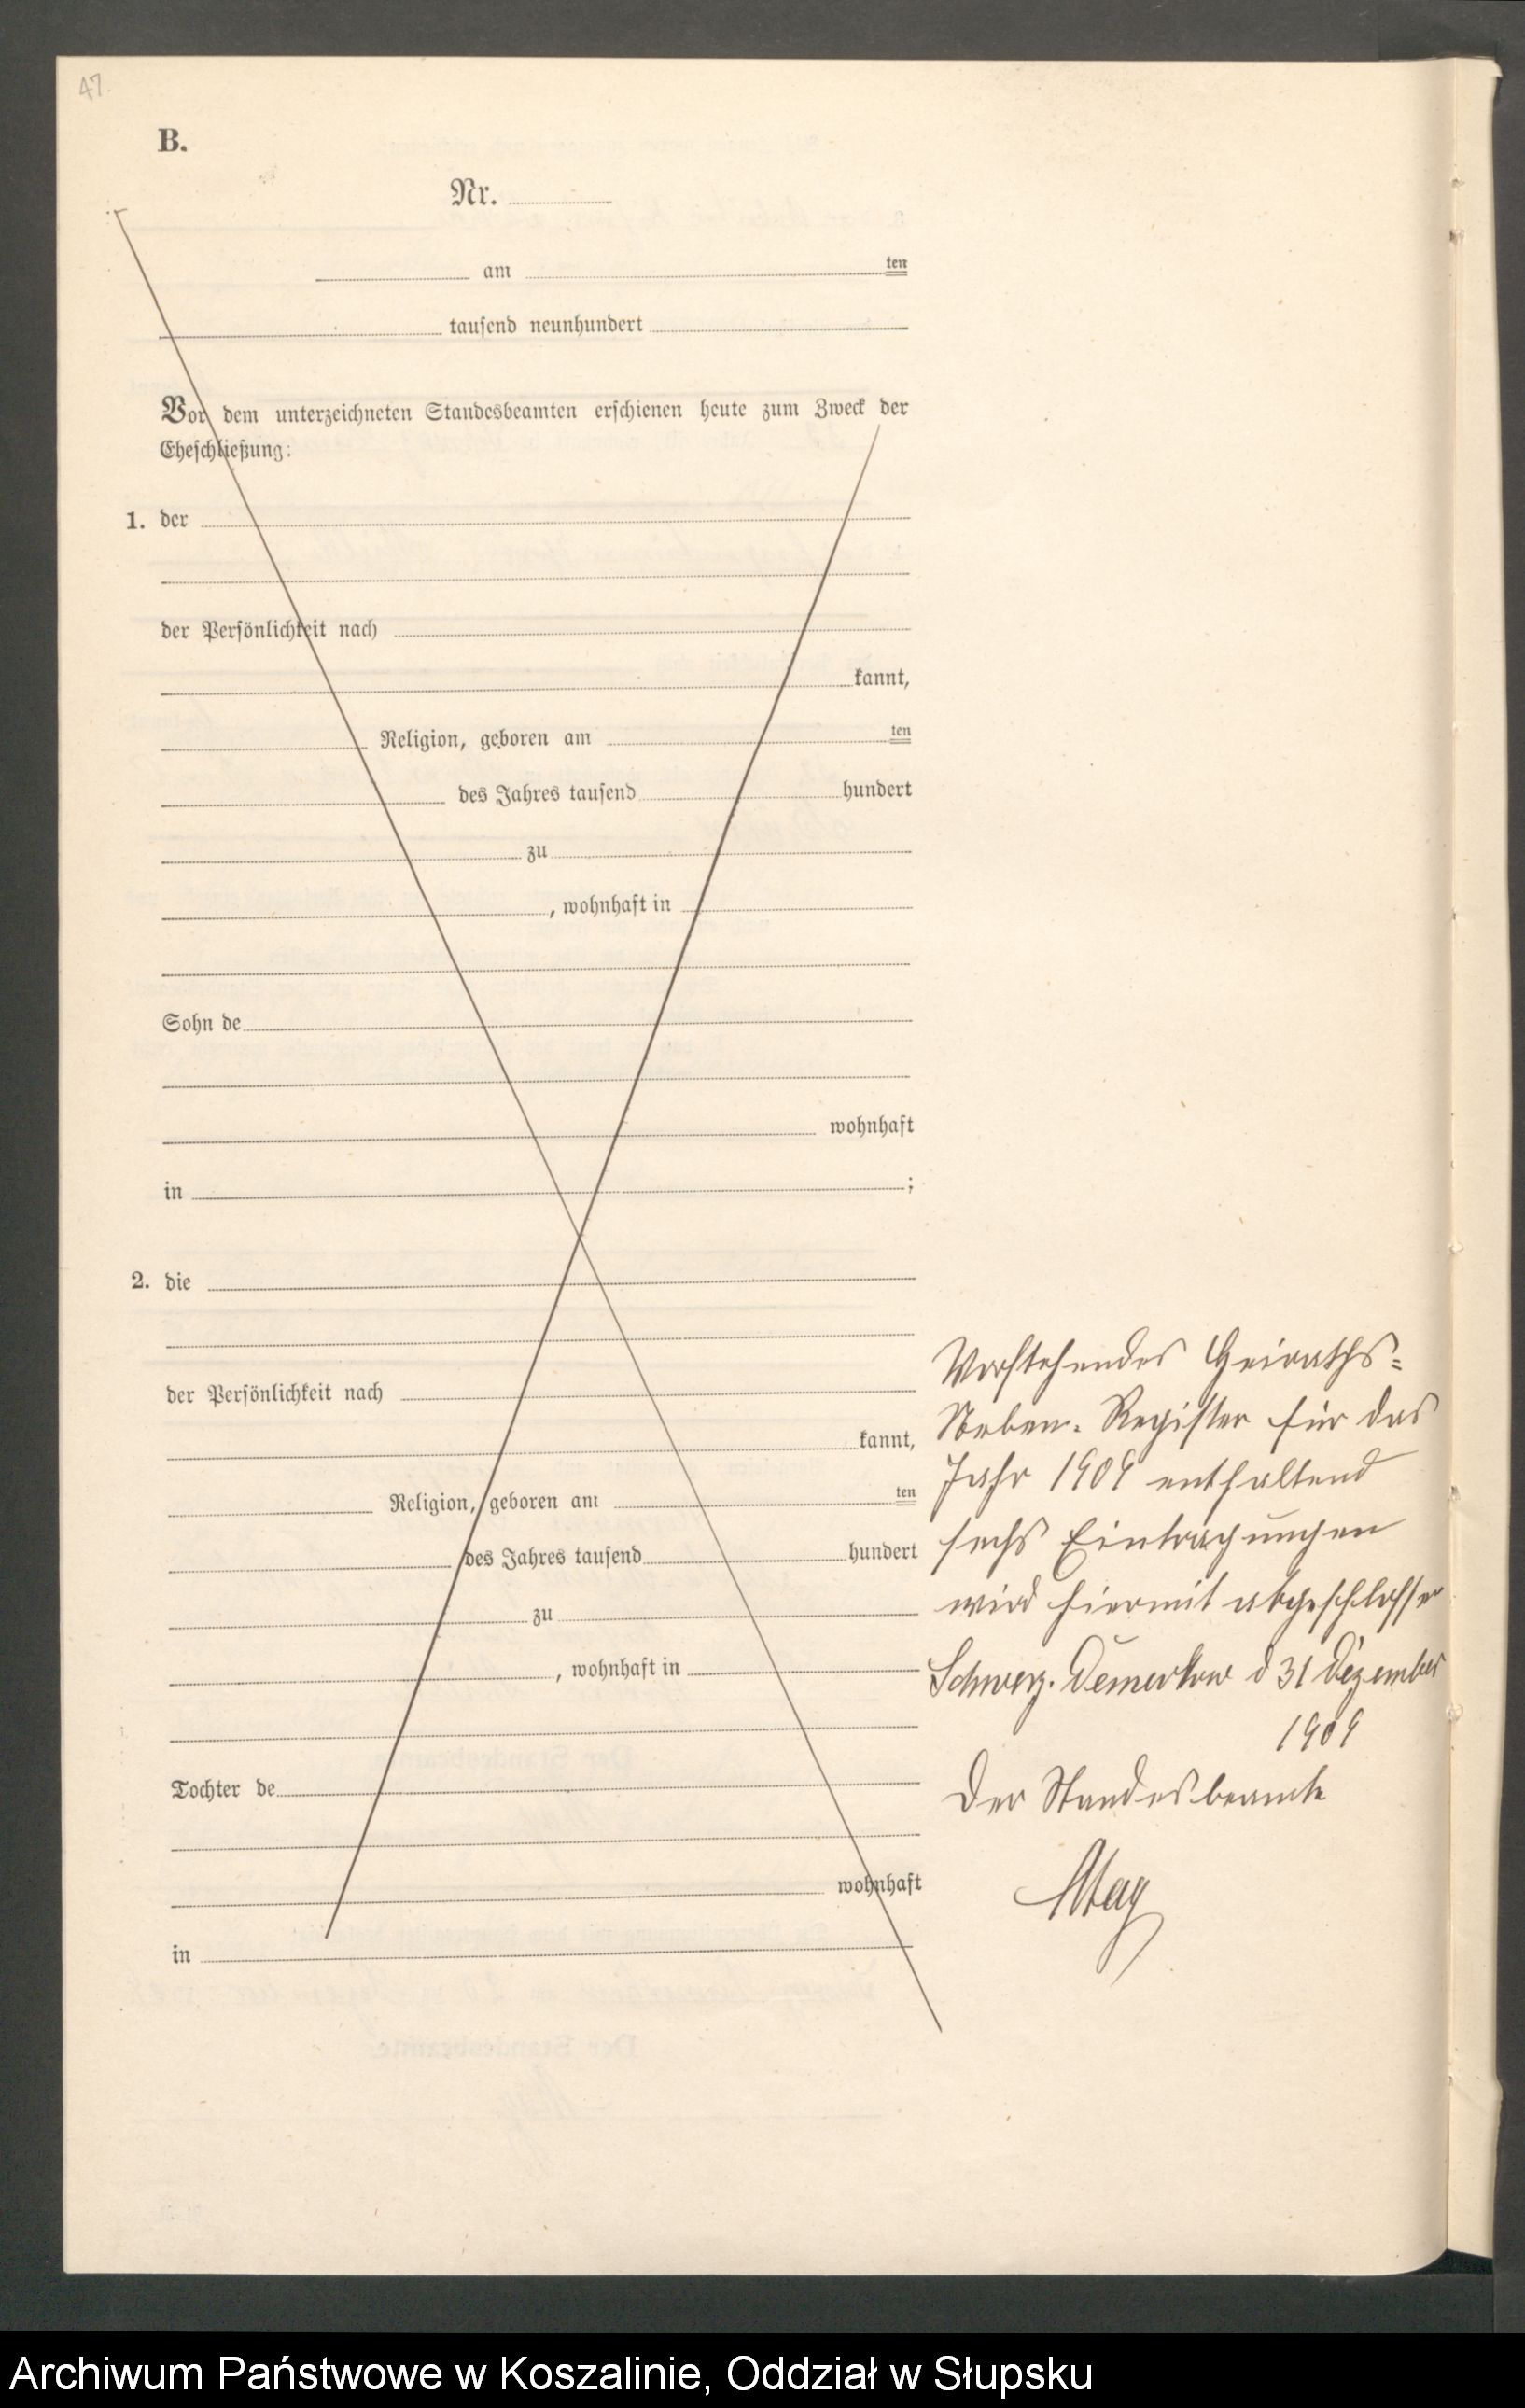 47
B.
Nr.
am ten
tausend neunhundert
Vor dem unterzeichneten Standesbeamten erschienen heute zum Zweck der
Eheschließung:
1. der
der Persönlichkeit nach
kannt,
Religion, geboren am ten
des Jahres tausend hundert
zu
, wohnhaft in
Sohn de
wohnhaft
in ;
2. die
der Persönlichkeit nach
kannt,
Religion, geboren am ten
des Jahres tausend hundert
zu
, wohnhaft in
Tochter de
wohnhaft
in
Vorstehendes Heiraths-
Neben-Register für das
Jahr 1909 enthaltend
sechs Eintragungen
wird hiermit abgeschlossen
Schwarz. Damerkow d 31 Dezember
1909
Der Standesbeamte
Archiwum Państwowe w Koszalinie, Oddział w Słupsku